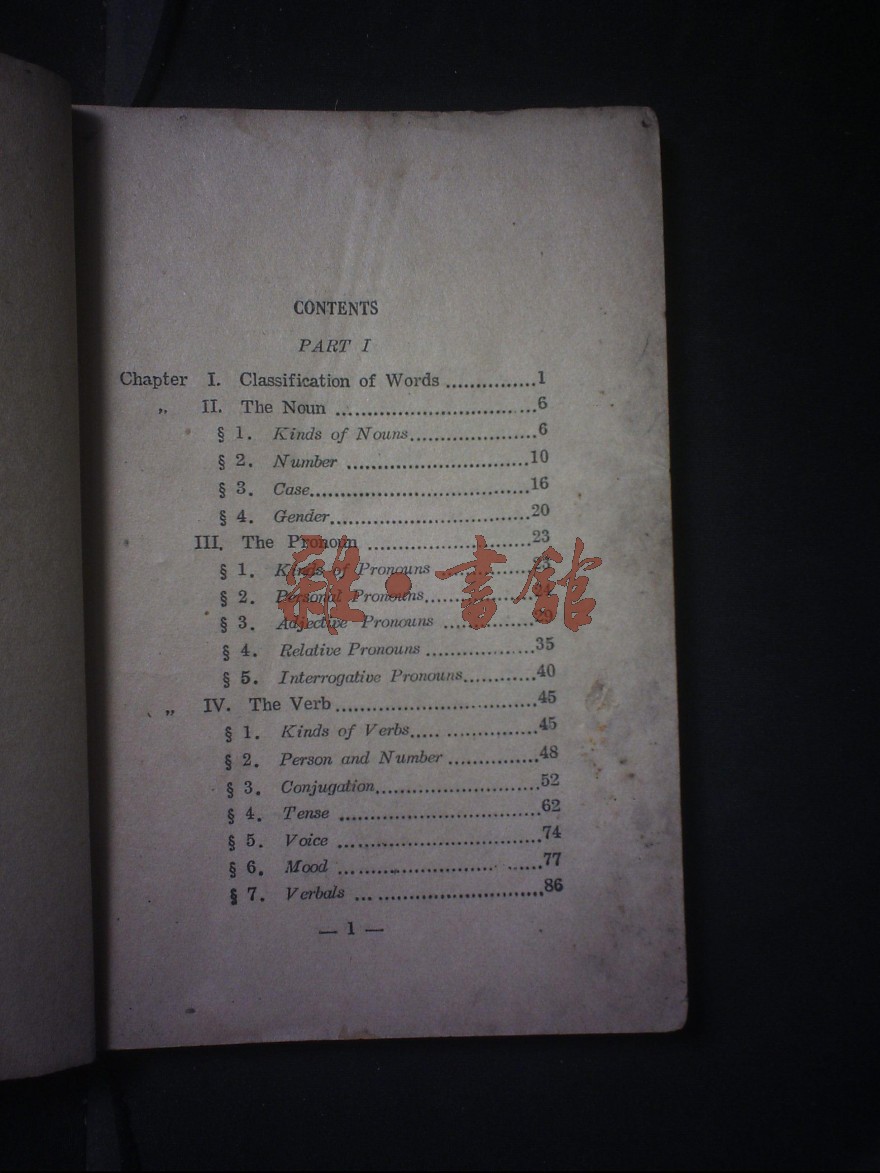 CONTENTS
PART I
Chapter I. Classification of Words ...............1
„ II. The Noun ................................6
§ 1. Kinds of Nouns....................6
§ 2. Number .............................10
§ 3. Case...................................16
§ 4. Gender................................20
III. The Pronoun ..........................23
§ 1. Kinds of Pronouns ...............23
§ 2. Personal Pronouns.................
§ 3. Adjective Pronouns ...............
§ 4. Relative Pronouns .................35
§ 5. Interrogative Pronouns............40
„ IV. The Verb ................................45
§ 1. Kinds of Verbs.....................45
§ 2. Person and Number ...............48
§ 3. Conjugation..........................52
§ 4. Tense ................................62
§ 5. Voice .................................74
§ 6. Mood .................................77
§ 7. Verbals ..............................86
— 1 —
雜·書館